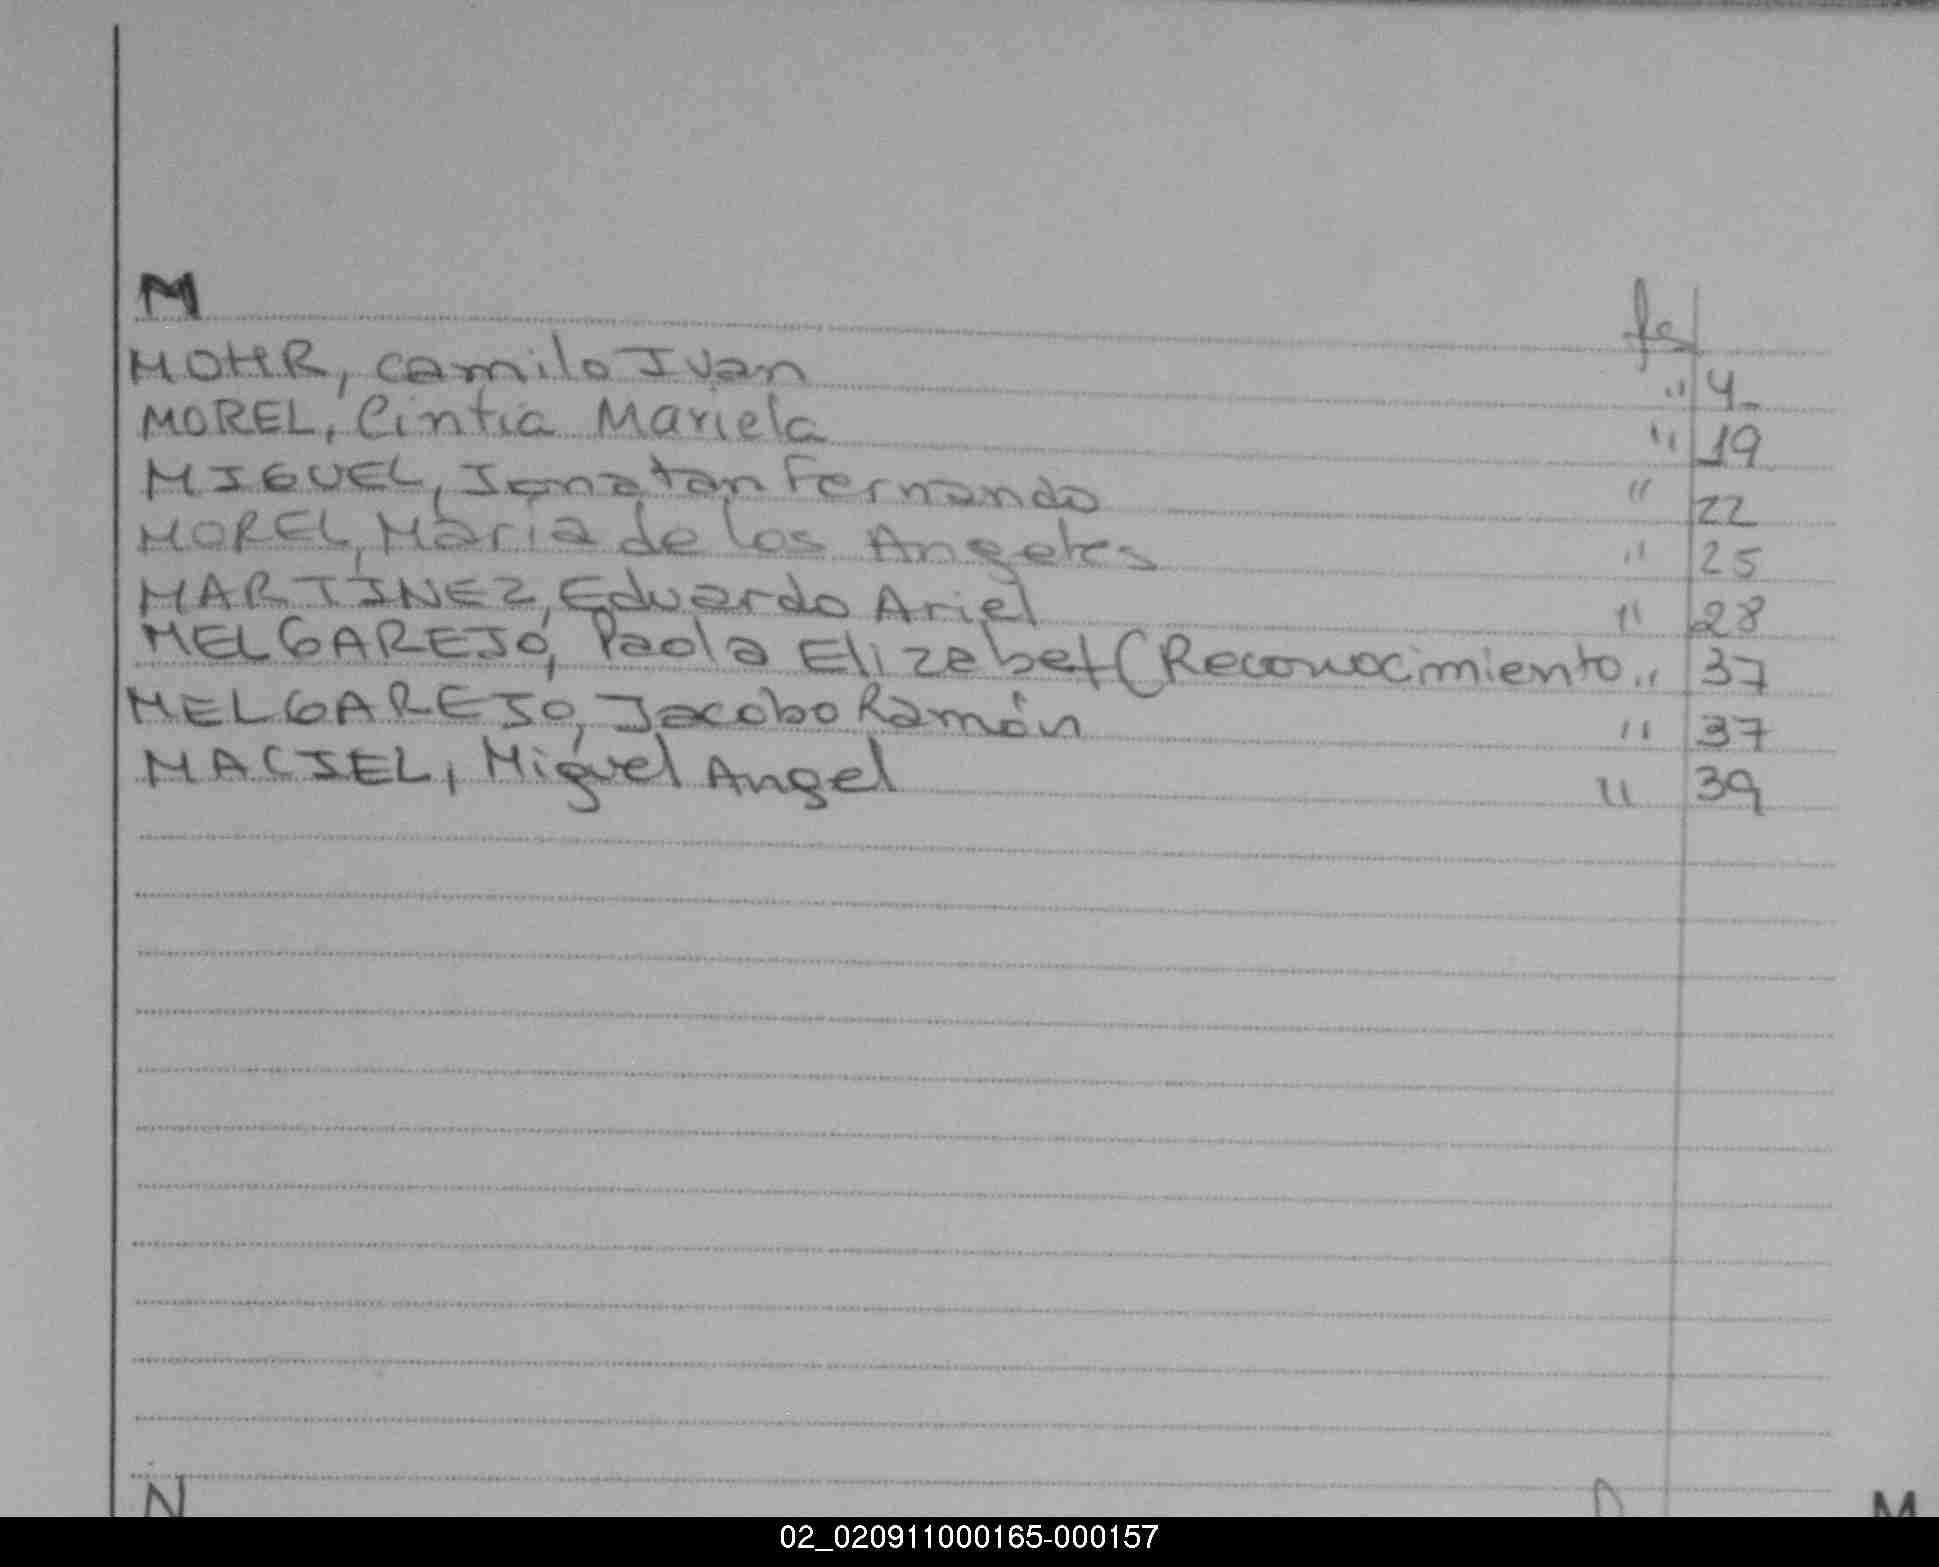 M fs
MOHR, Camilo Ivan " 4-
MOREL, Cintia Mariela " 19
MIGUEL, Jonatan Fernando " 22
MOREL, Maria de los Angeles " 25
MARTINEZ, Eduardo Ariel " 28
MELGAREJO, Paola Elizabet (Reconocimiento " 37
MELGAREJO, Jacobo Ramón " 37
MACIEL, Miguel Angel " 39
N
M
02_020911000165-000157